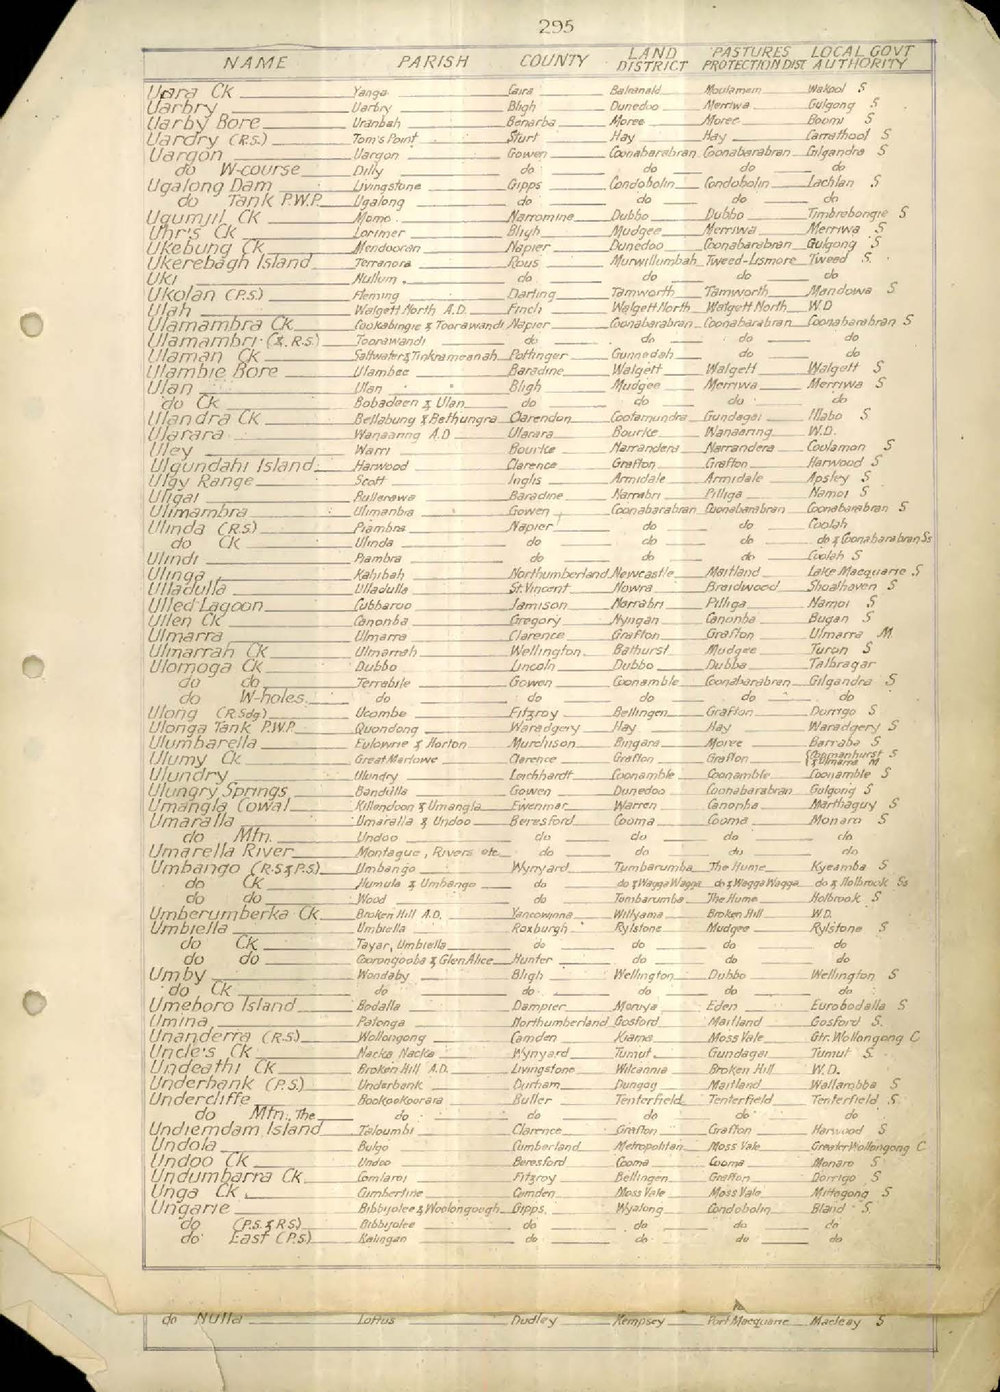 295
NAME PARISH COUNTY LAND DISTRICT PASTURES PROTECTION DIST LOCAL GOVT AUTHORITY
Uara Ck Yanga Caira Balranald Moulamein Wakool S
Uarbry Uarbry Bligh Dunedoo Merriwa Gulgong S
Uarby Bore Uranbah Benarba Moree Moree Boomi S
Uardry (R.S.) Tom's Point Sturt Hay Hay Carrathool S
Uargon Uargon Gowen Coonabarabran Coonabarabran Gilgandra S
do W-course Dilly do do do do
Ugalong Dam Livingstone Gipps Condobolin Condobolin Lachlan S
do Tank P.W.P. Ugalong do do do do
Ugumjil Ck Momo Narromine Dubbo Dubbo Timbrebongie S
Uhr's Ck Lorimer Bligh Mudgee Merriwa Merriwa S
Ukebung Ck Mendooran Napier Dunedoo Coonabarabran Gulgong S
Ukerebagh Island Terranora Rous Murwillumbah Tweed-Lismore Tweed S
Uki Nullum do do do do
Ukolan (P.S.) Fleming Darling Tamworth Tamworth Mandowa S
Ulah Walgett North A.D. Finch Walgett North Walgett North W.D
Ulamambra Ck Cookabingie & Toorawandi Napier Coonabarabran Coonabarabran Coonabarabran S
Ulamambri (& R.S.) Toorawandi do do do do
Ulaman Ck Saltwater & Tinkrameanah Pottinger Gunnedah do do
Ulambie Bore Ulambee Baradine Walgett Walgett Walgett S
Ulan Ulan Bligh Mudgee Merriwa Merriwa S
do Ck Bobadeen & Ulan do do do do
Ulandra Ck Bellabung & Bethungra Clarendon Cootamundra Gundagai Illabo S
Ularara Wanaaring A.D Ularara Bourke Wanaaring W.D.
Uley Warri Bourke Narrandera Narrandera Coolamon S
Ulgundahi Island Harwood Clarence Grafton Grafton Harwood S
Ulgy Range Scott Inglis Armidale Armidale Apsley S
Uligal Bullerawa Baradine Narrabri Pilliga Namoi S
Ulimambra Ulimanbia Gowen Coonabarabran Coonabarabran Coonabarabran S
Ulinda (R.S.) Piambra Napier do do Coolah
do CK Ulinda do do do do & Coonabarabran Ss
Ulindi Piambra do do do Coolah S
Ulinga Kahibah Northumberland Newcastle Maitland Lake Macquarie S
Ulladulla Ulladulla St. Vincent Nowra Braidwood Shoalhaven S
Ulled Lagoon Cubbaroo Jamison Narrabri Pilliga Namoi S
Ullen Ck Canonba Gregory Nyngan Canonba Bugan S
Ulmarra Ulmarra Clarence Grafton Grafton Ulmarra M
Ulmarrah Ck Ulmarrah Wellington Bathurst Mudgee Turon S
Ulomoga Ck Dubbo Lincoln Dubbo Dubbo Talbragar
do do Terrabile Gowen Coonamble Coonabarabran Gilgandra S
do W-holes do do do do do
Ulong (R.Sdg) Ucombe Fitzroy Bellingen Grafton Dorrigo S
Ulonga Tank P.W.P. Quondong Waradgery Hay Hay Waradgery S
Ulumbarella Eulowrie & Horton Murchison Bingara Moree Barraba S
Ulumy Ck Great Marlowe Clarence Grafton Grafton {Copmanhurst S
& Ulmarra M
Ulundry Ulundry Leichhardt Coonamble Coonamble Coonamble S
Ulungry Springs Bandilla Gowen Dunedoo Coonabarabran Gulgong S
Umangla Cowal Killendoon & Umangla Ewenmar Warren Canonba Marthaguy S
Umaralla Umaralla & Undoo Beresford Cooma Cooma Monaro S
do Mtn. Undoo do do do do
Umarella River Montague, Rivers etc. do do do do
Umbango (R.S & P.S) Umbango Wynyard Tumbarumba The Hume Kyeamba S
do Ck Humula & Umbango do do & Wagga Wagga do & Wagga Wagga do & Holbrook Ss
do do Wood do Tombarumba The Hume Holbrook S
Umberumberka Ck Broken Hill A.D. Yancowinna Willyama Broken Hill W.D.
Umbiella Umbiella Roxburgh Rylstone Mudgee Rylstone S
do Ck Tayar, Umbiella do do do do
do do Coorongooba & Glen Alice Hunter do do do
Umby Wondaby Bligh Wellington Dubbo Wellington S
do Ck do do do do do
Umeboro Island Bodalla Dampier Moruya Eden Eurobodalla S
Umina Patonga Northumberland Gosford Maitland Gosford S.
Unanderra (R.S) Wollongong Camden Kiama Moss Vale Gtr. Wollongong C
Uncle's Ck Nacka Nacka Wynyard Tumut Gundagai Tumut S
Undeathi Ck Broken Hill A.D. Livingstone Wilcannia Broken Hill W.D.
Underbank (P.S.) Underbank Durham Dungog Maitland Wallarobba S
Undercliffe Bookookoorara Buller Tenterfield Tenterfield Tenterfield S
do Mtn., The do do do do do
Undiemdam Island Taloumbi Clarence Grafton Grafton Harwood S
Undola Bulgo Cumberland Metropolitan Moss Vale Greater Wollongong C
Undoo Ck Undoo Beresford Cooma Cooma Monaro S
Undumbarra Ck Comlaroi Fitzroy Bellingen Grafton Dorrigo S
Unga Ck Cumbertine Camden Moss Vale Moss Vale Mittagong S
Ungarie Bibbijolee & Woolongough Gipps Wyalong Condobolin Bland S
do (P.S. & R.S) Bibbijolee do do do do
do East (P.S) Kalingan do do do do
do Nulla Loftus Dudley Kempsey Port Macquarie Macleay S